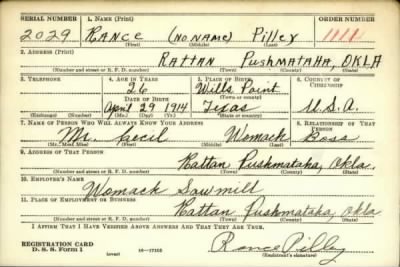 SERIAL NUMBER 1. NAME (Print) ORDER NUMBER
2029 RANCE (NO NAME) Pilley
(First) (Middle) (Last)
2. ADDRESS (Print)
RATTAN PushMATAHA, OKLA
(Number and street or R. F. D. number) (Town) (County) (State)
3. TELEPHONE 4. AGE IN YEARS 5. PLACE OF BIRTH 6. COUNTRY OF CITIZENSHIP
26 Wills Point
DATE OF BIRTH (Town or county)
April 29 1914 Texas U.S.A.
(Exchange) (Number) (Mo.) (Day) (Yr.) (State or country)
7. NAME OF PERSON WHO WILL ALWAYS KNOW YOUR ADDRESS 8. RELATIONSHIP OF THAT PERSON
Mr. Cecil Womack Boss
(Mr., Mrs., Miss) (First) (Middle) (Last)
9. ADDRESS OF THAT PERSON
Rattan Pushmataha, Okla.
(Number and street or R. F. D. number) (Town) (County) (State)
10. EMPLOYER'S NAME
Womack Sawmill
11. PLACE OF EMPLOYMENT OR BUSINESS
Rattan Pushmataha, Okla
(Number and street or R. F. D. number) (Town) (County) (State)
I AFFIRM THAT I HAVE VERIFIED ABOVE ANSWERS AND THAT THEY ARE TRUE.
REGISTRATION CARD
D. S. S. Form 1 (over) 16—17105
Rance Pilley
(Registrant's signature)